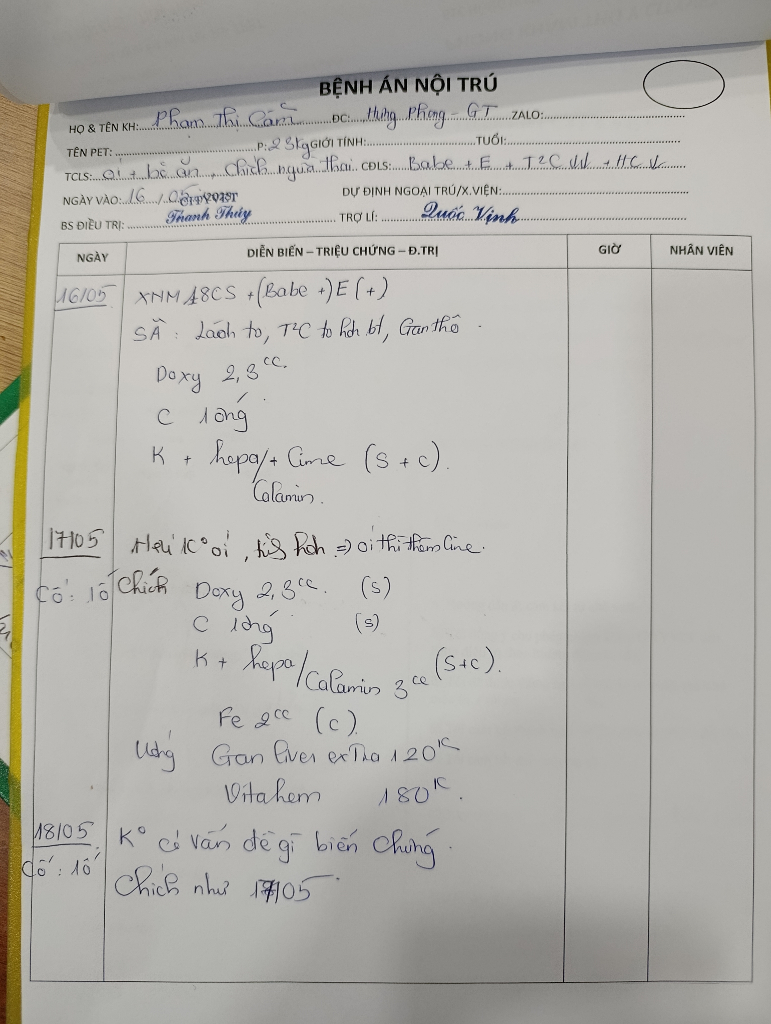 BỆNH ÁN NỘI TRÚ
HỌ & TÊN KH: Phạm Thị Cẩm ĐC: Hưng Phong - GT ZALO:
TÊN PET: P: 23kg GIỚI TÍNH: TUỔI:
TCLS: ói + bỏ ăn, chích ngừa thai CĐLS: Babe + E + T²C ↓↓ + HC ↓
NGÀY VÀO: 16 / 05 DỰ ĐỊNH NGOẠI TRÚ/X.VIỆN:
BS ĐIỀU TRỊ: Thanh Thúy TRỢ LÍ: Quốc Vịnh
NGÀY DIỄN BIẾN – TRIỆU CHỨNG – Đ.TRỊ GIỜ NHÂN VIÊN
16/05 XNM 18CS + (Babe +) E (+)
SÂ : Lách to, T²C to hơn bt, Gan thô
Doxy 2,3cc
C 1 ống
K + hepa/+ Cime (S + C).
Calamin.
17/05 Hiện K° ói, => ói thì thêm Cime.
Cố: 1ố Chích Doxy 2,3cc. (S)
C 1 ống (S)
K + hepa/Calamin 3cc (S+C).
Fe 2cc (C)
Uống Gan liver extra 120K
Vitahem 180K.
18/05 K° có vấn đề gì biến chứng.
Cố: 1ố Chích như 17/05